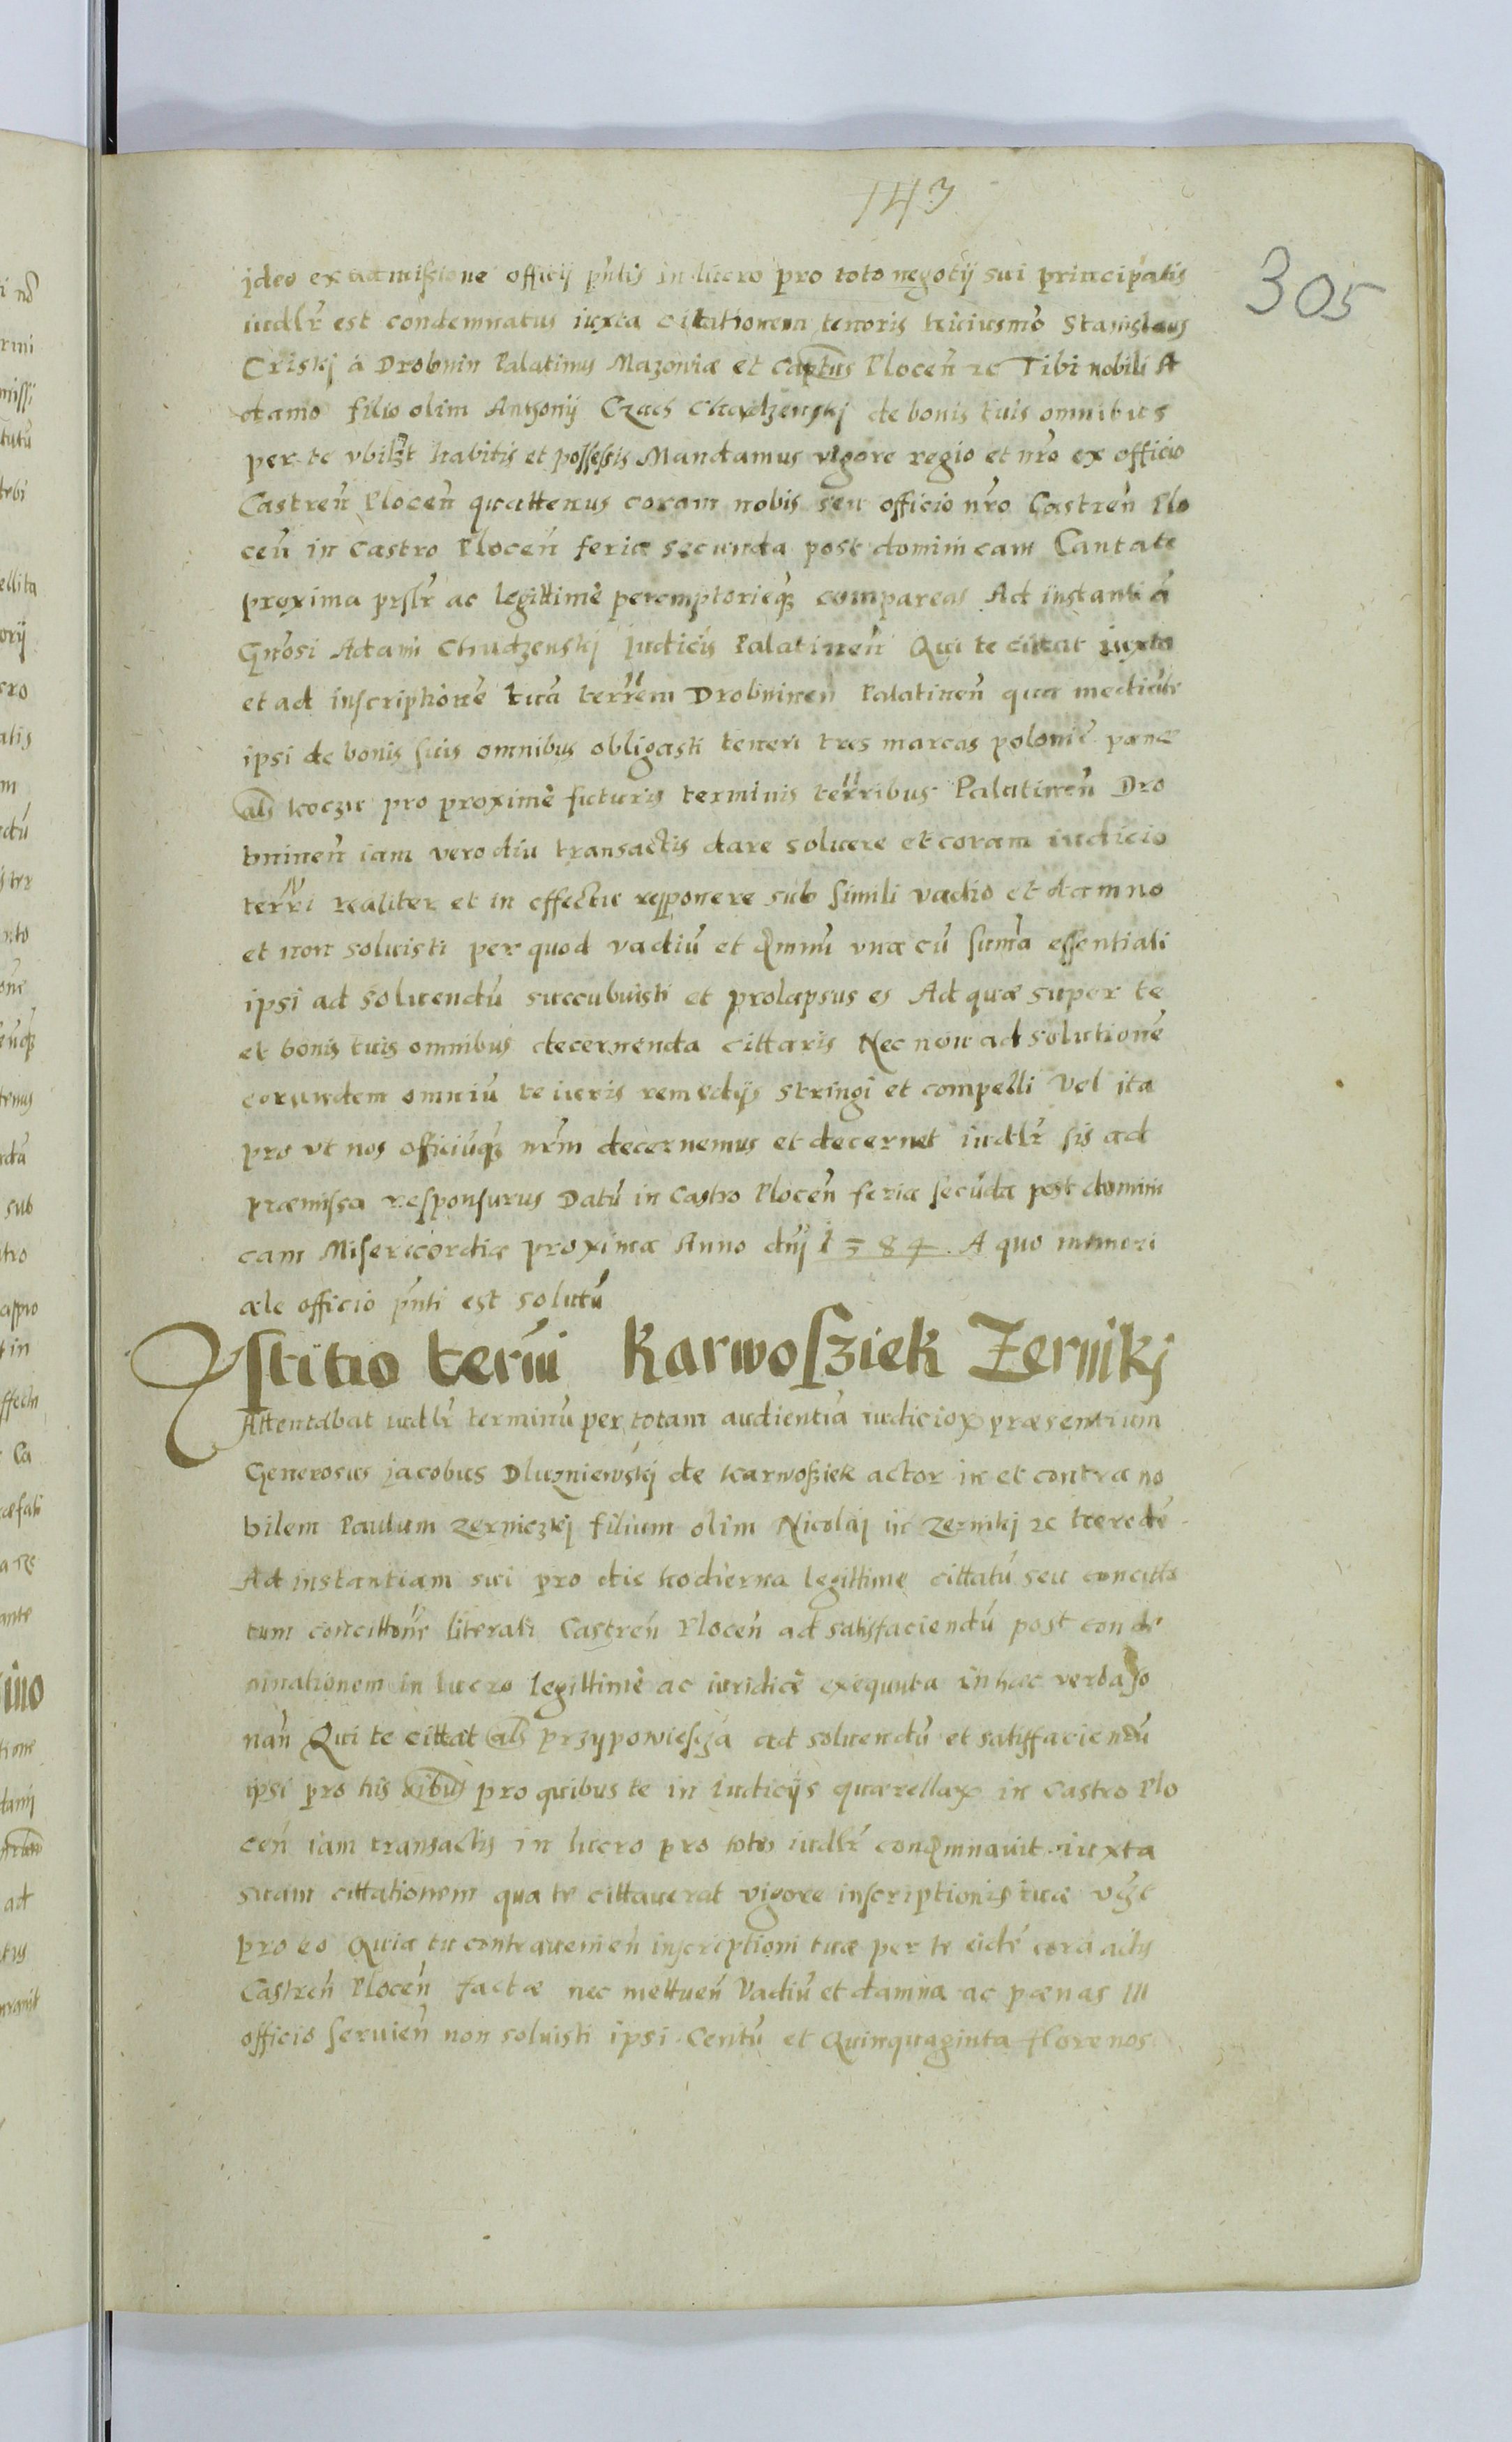 143
305
ideo ex admissione officij pñtis in lucro pro toto negotij sui principalis
iudlr est condemnatus iuxta citationem tenoris huiusmo Stanislaus
Criskj á Drobnin Palatinus Mazoniæ et Captus Plocen̄ rc Tibi nobili A
damo filio olim Anthonij Czach Chudzenskj de bonis tuis omnibus
per te vbilzt habitis et possessis Mandamus vigore regio et nr̄o ex officio
Castren̄ Plocen̄ quattenus coram nobis seu officio nr̄o Castren̄ Plo
cen̄ in Castro Plocen̄ feria secunda post dominicam Cantate
proxima prslr ac legittimè peremptorieqз compareas Ad instantiā
Gn̄osi Adami Chudzenskj Judicis Palatinen̄ Qui te citat iuxta
et ad inscriptionē tuā terrem Drobninen̄ Palatinen̄ qua mediāte
ipsi de bonis suis omnibus obligasti teneri tres marcas polonie pœnæ
als koczu pro proximè futuris terminis terribus Palatinen̄ Dro
bninen̄ iam vero diu transactis dare soluere et coram iudicio
terri realiter et in effectu reponere sub simili vadio et damno
et non soluisti per quod vadiū et dmnū vna cū sum̄a essentiali
ipsi ad soluendū succubuisti et prolapsus es Ad quæ super te
et bonis tuis omnibus decernenda cittaris Nec non ad solutionē
eorundem omniū te iuris remedijs stringi et compelli Vel ita
pro vt nos officiūqз nr̄m decernemus et decernet iudlr sis ad
præmissa responsurus Datū in Castro Plocen̄ feria secūda post domini
cam Misericordiæ proxima Anno dn̄j 1584. A quo memori
ale officio pn̄ti est solutū
Astitio term̄i Karwosziek Zernikj
Attentabat iudlr terminū per totam audientiā iudicioꝝ præsentium
Generosus Jacobus Dluzniewskj de Karwosziek actor in et contra no
bilem Paulum Zerniczkj filium olim Nicolaj in Zernikj rc herede
Ad instantiam sui pro die hodierna legittime cittatū seu concitta
tum concittōne literali Castren̄ Plocen̄ ad satisfaciendū post conde
mnationem in lucro legittimè ac iuridicè exequuta in hæc verba so
nan̄ Qui te cittat als przypowiesczą ad soluendū et satisfaciendū
ipsi pro his oibus pro quibus te in iudicijs quærellaꝝ in Castro Plo
cen̄ iam transactis in lucro pro toto iudlr condmnauit iuxta
suam cittationem qua te cittauerat vigore inscriptionis tuæ vz
pro eo Quia tu contrauenien̄ inscriptioni tuæ per te eidē corā actis
Castren̄ Plocen̄ factæ nec mettuen̄ Vadiū et damna ac pœnas III
officio seruien̄ non soluisti ipsi Centū et Quinquaginta florenos